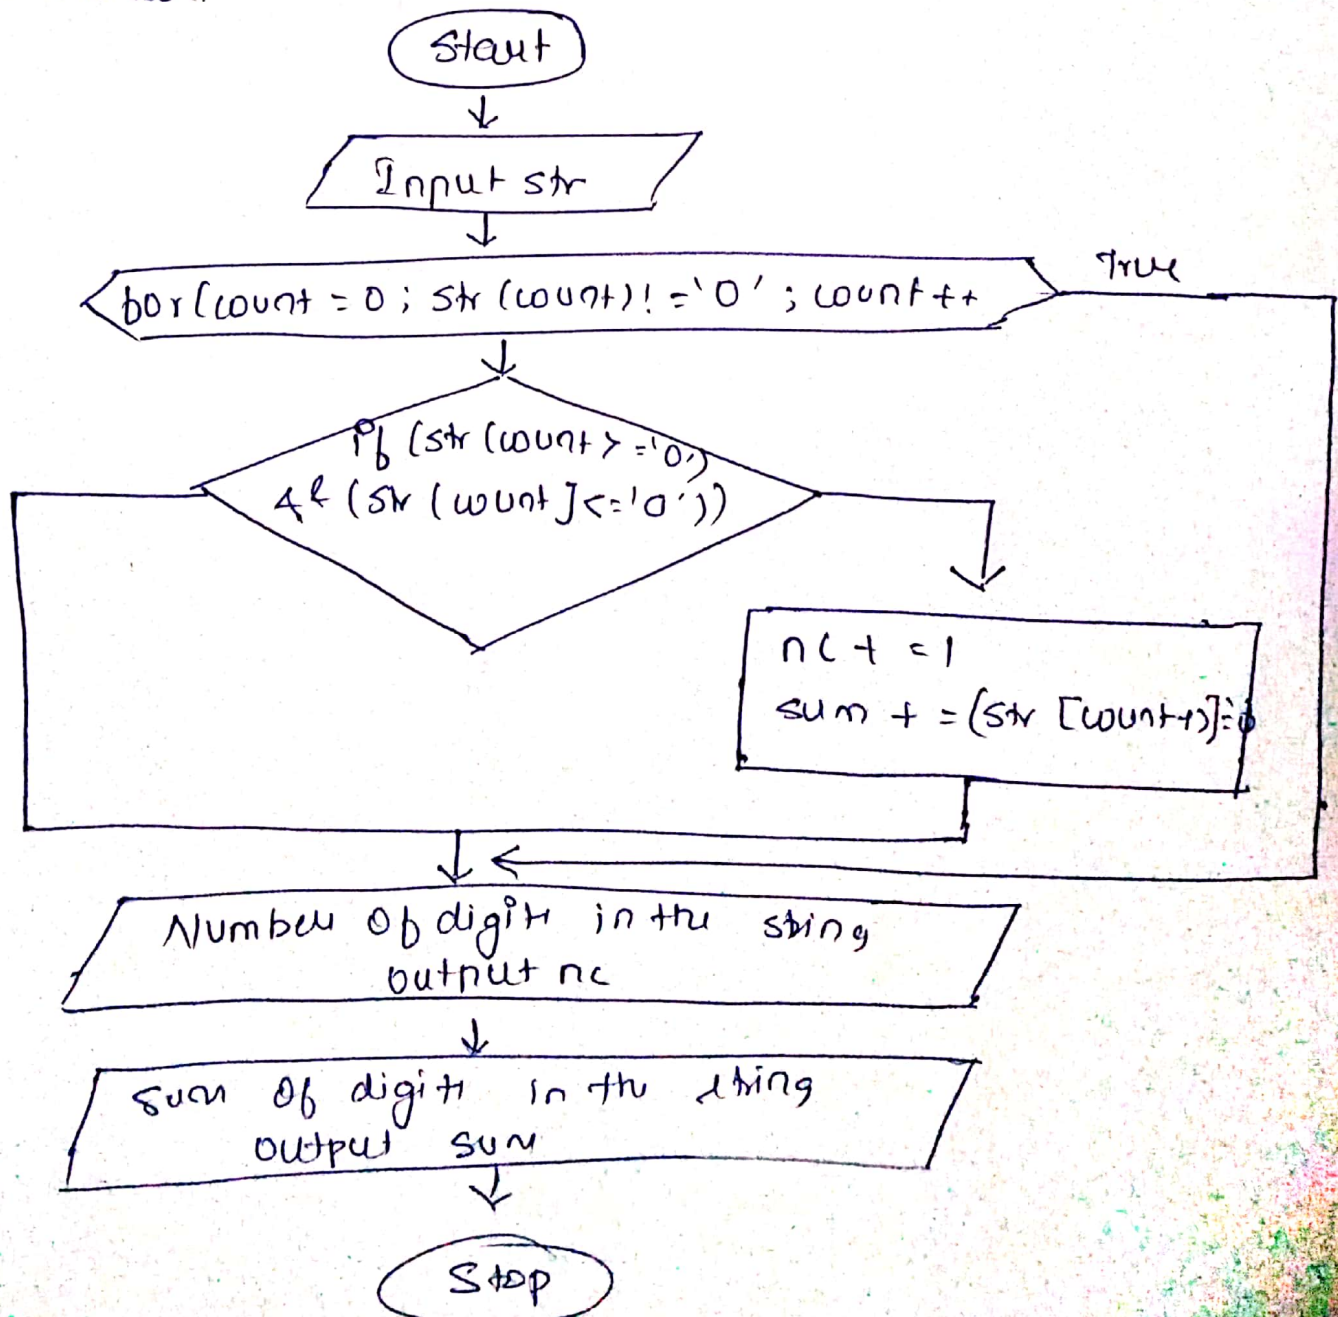 Start
Input str
for(count = 0; str (count)! = '0' ; count ++
True
if (str (count > = '0')
&& (str (count ] <= '0'))
nc + = 1
sum + = (str [count++)]-'0
Number of digits in the string
output nc
sum of digits in the string
output sum
Stop